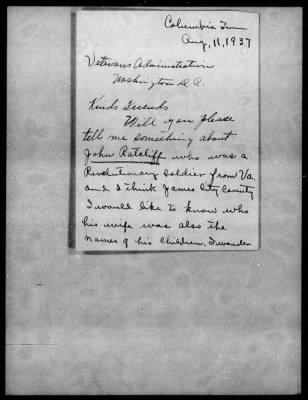 Columbia Tenn
Aug, 11, 1937
Veterans Administration
Washington D.C.
Kind Friends
Will you please
tell me something about
John Ratcliff who was a
Revolutionary Soldier from Va.
and I think James City County
I would like to know who
his wife was also the
names of his children, I wonder